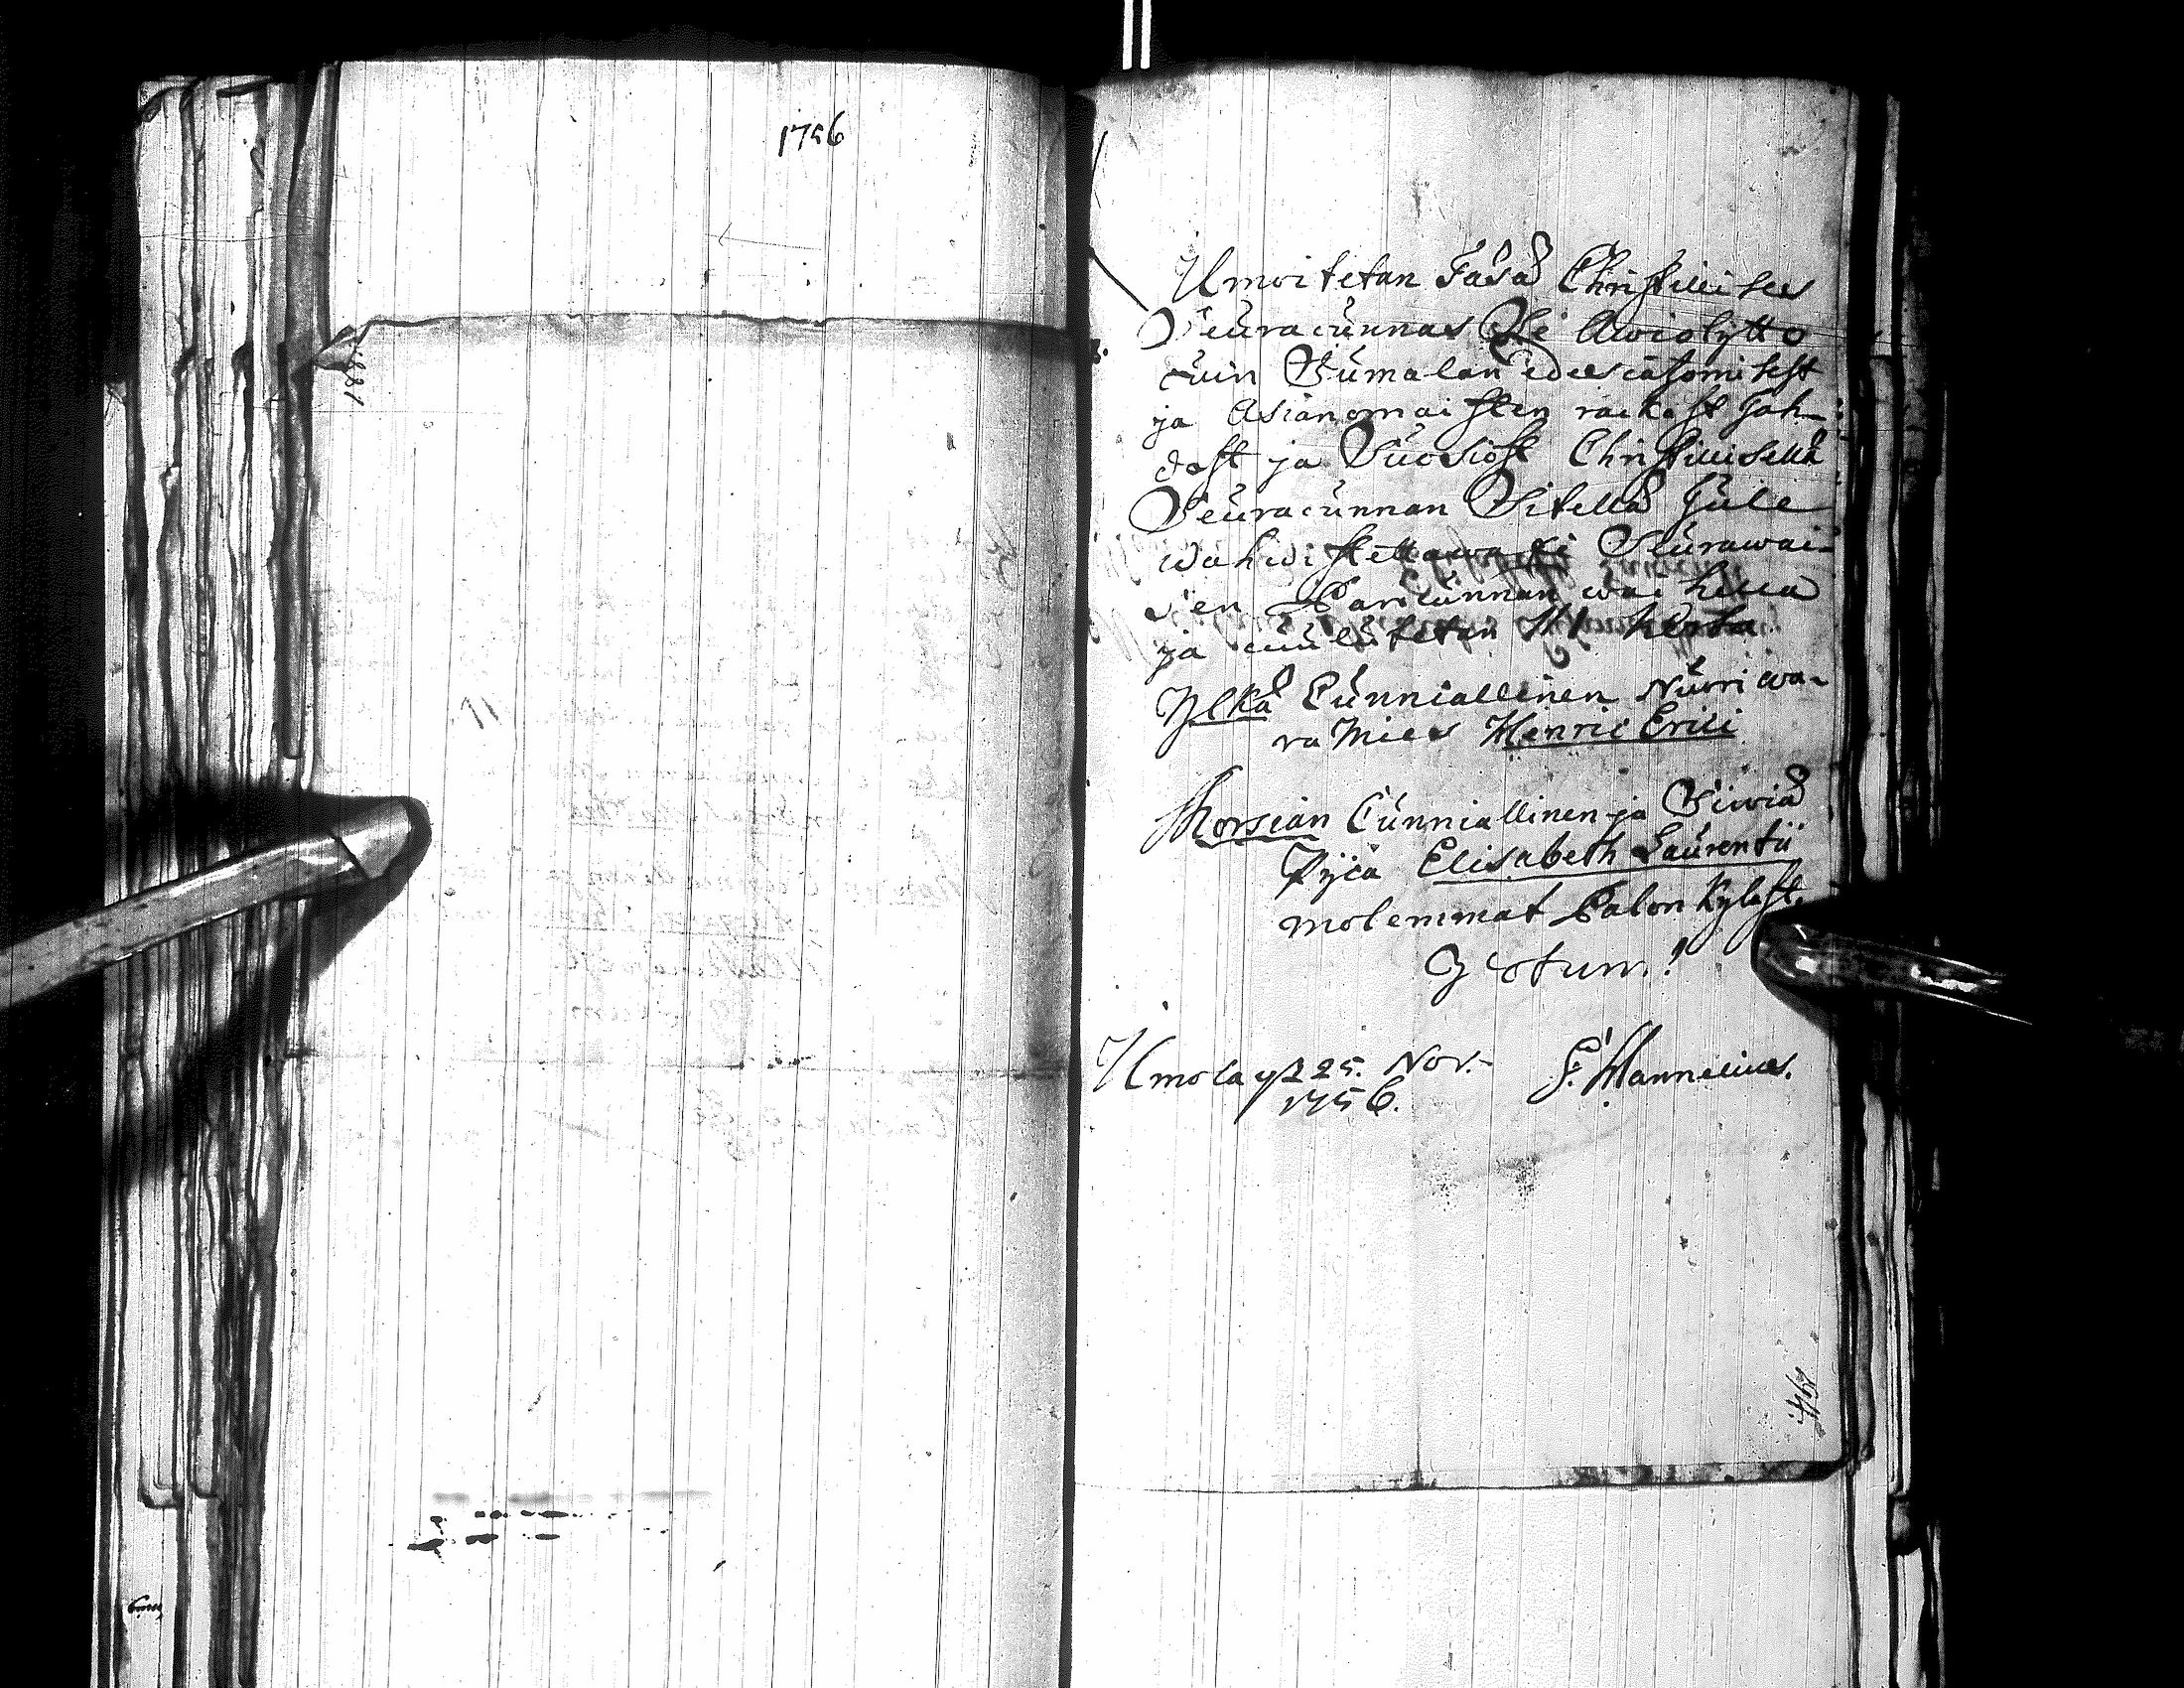 1756
Ilmoitetan Täsä Christillises
Seuracunnas Se Awiolijtto
cuin Jumalan edescazomisest
ja Asianomaisten rackast Joh-
dost ja Suosiost Christillisellä
Seuracunnan Sitellä Tule
wahwistettawaxi Seurawai-
sen Pariscunnan waihella
ja cuulutetan III kerta
Ylkä Cunniallinen Nuori wa-
ra Mies Henric Erici
Morsian Cunniallinen ja Siwiä
Pijca Elisabeth Laurentii
molemmat Palon Kyläst.
Votum!
Ilmolas 25. Nov.- G. Mannelius.
1756.